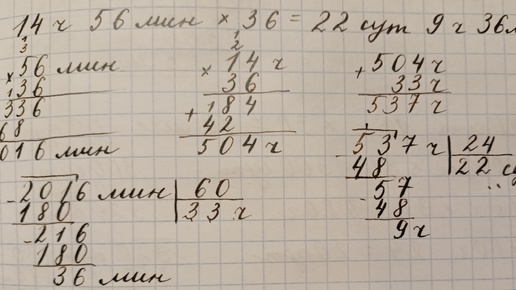 14 ч 56 мин × 36 = 22 сут 9 ч 36м
1
3
× 56 мин
36
336
68
016 мин
1
2
× 14 ч
36
+ 184
42
504 ч
+ 504 ч
33 ч
537 ч
- 537 ч | 24
48 | 22 су
- 57
48
9 ч
- 2016 мин | 60
180 | 33 ч
- 216
180
36 мин